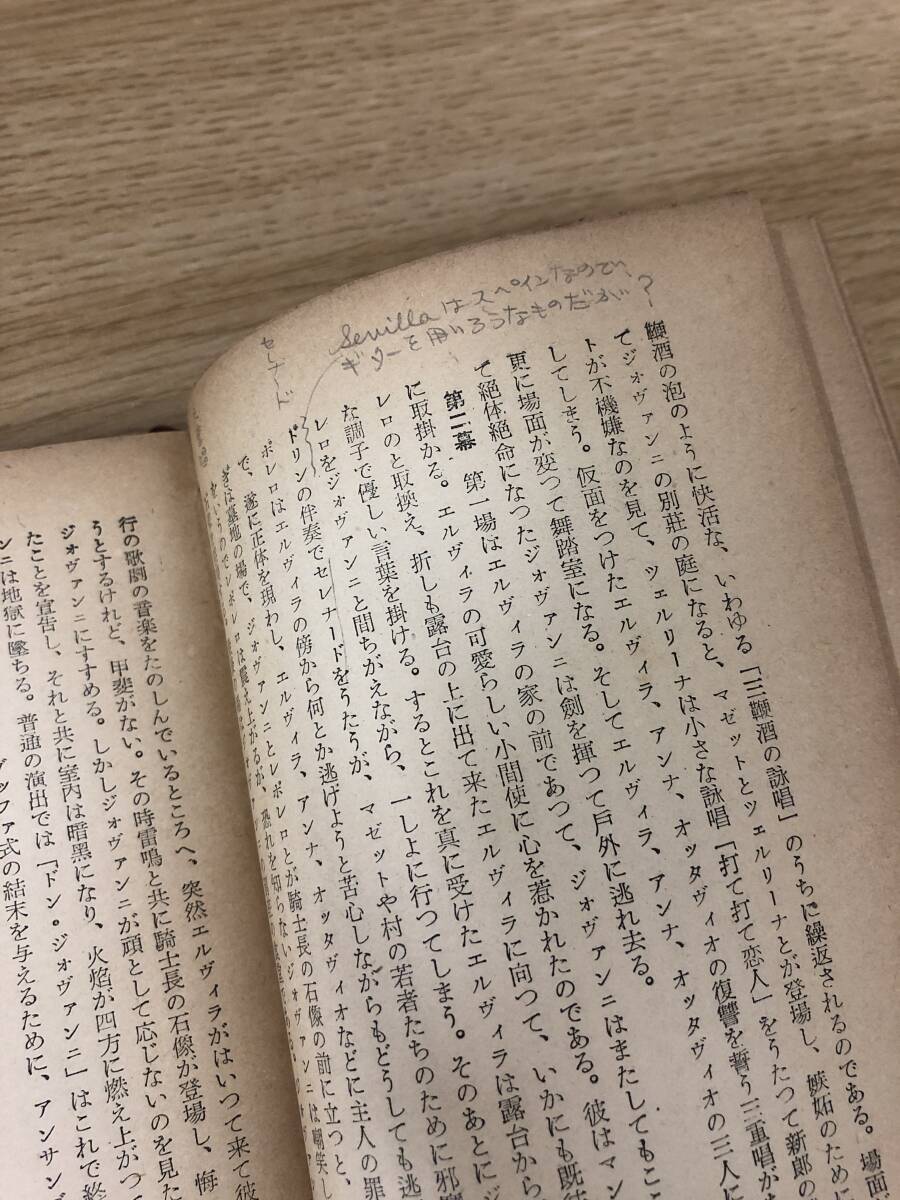 Sevillaはスペインなので、
ギターを用いろうなものだが?
セナード
鞭酒の泡のように快活な、いわゆる「三鞭酒の詠唱」のうちに繰返されるのである。場面が
てジォヴァンニの別荘の庭になると、マゼットとツェルリーナとが登場し、嫉妬のため
トが不機嫌なのを見て、ツェルリーナは小さな詠唱「打て打て恋人」をうたつて新郎の
してしまう。仮面をつけたエルヴィラ、アンナ、オッタヴィオの復讐を誓う三重唱が
更に場面が変つて舞踏室になる。そしてエルヴィラ、アンナ、オッタヴィオの三人に
て絶体絶命になつたジォヴァンニは剣を揮つて戸外に逃れ去る。
第二幕 第一場はエルヴィラの家の前であつて、ジォヴァンニはまたしてもこ
に取掛かる。エルヴィラの可愛らしい小間使に心を惹かれたのである。彼はマン
レロのと取換え、折しも露台の上に出て来たエルヴィラに向つて、いかにも既往
な調子で優しい言葉を掛ける。するとこれを真に受けたエルヴィラは露台から
レロをジォヴァンニと間ちがえながら、一しよに行つてしまう。そのあとにジ
ドリンの伴奏でセレナードをうたうが、マゼットや村の若者たちのために邪魔
ポレロはエルヴィラの傍から何とか逃げようと苦心しながらもどうしても逃
で、遂に正体を現わし、エルヴィラ、アンナ、オッタヴィオなどに主人の罪
ぎは墓地の場で、ジォヴァンニとレポレロとが騎士長の石像の前に立つと、
をいうのでレポレロは震え上がるが、恐れを知らないジォヴァンニは嘲笑し
行の歌劇の音楽をたのしんでいるところへ、突然エルヴィラがはいつて来て彼
うとするけれど、甲斐がない。その時雷鳴と共に騎士長の石像が登場し、悔
ジォヴァンニにすすめる。しかしジォヴァンニが頑として応じないのを見た
たことを宣告し、それと共に室内は暗黒になり、火焰が四方に燃え上がつ
ンニは地獄に墜ちる。普通の演出では「ドン・ジォヴァンニ」はこれで終
ブッファ式の結末を与えるために、アンサン